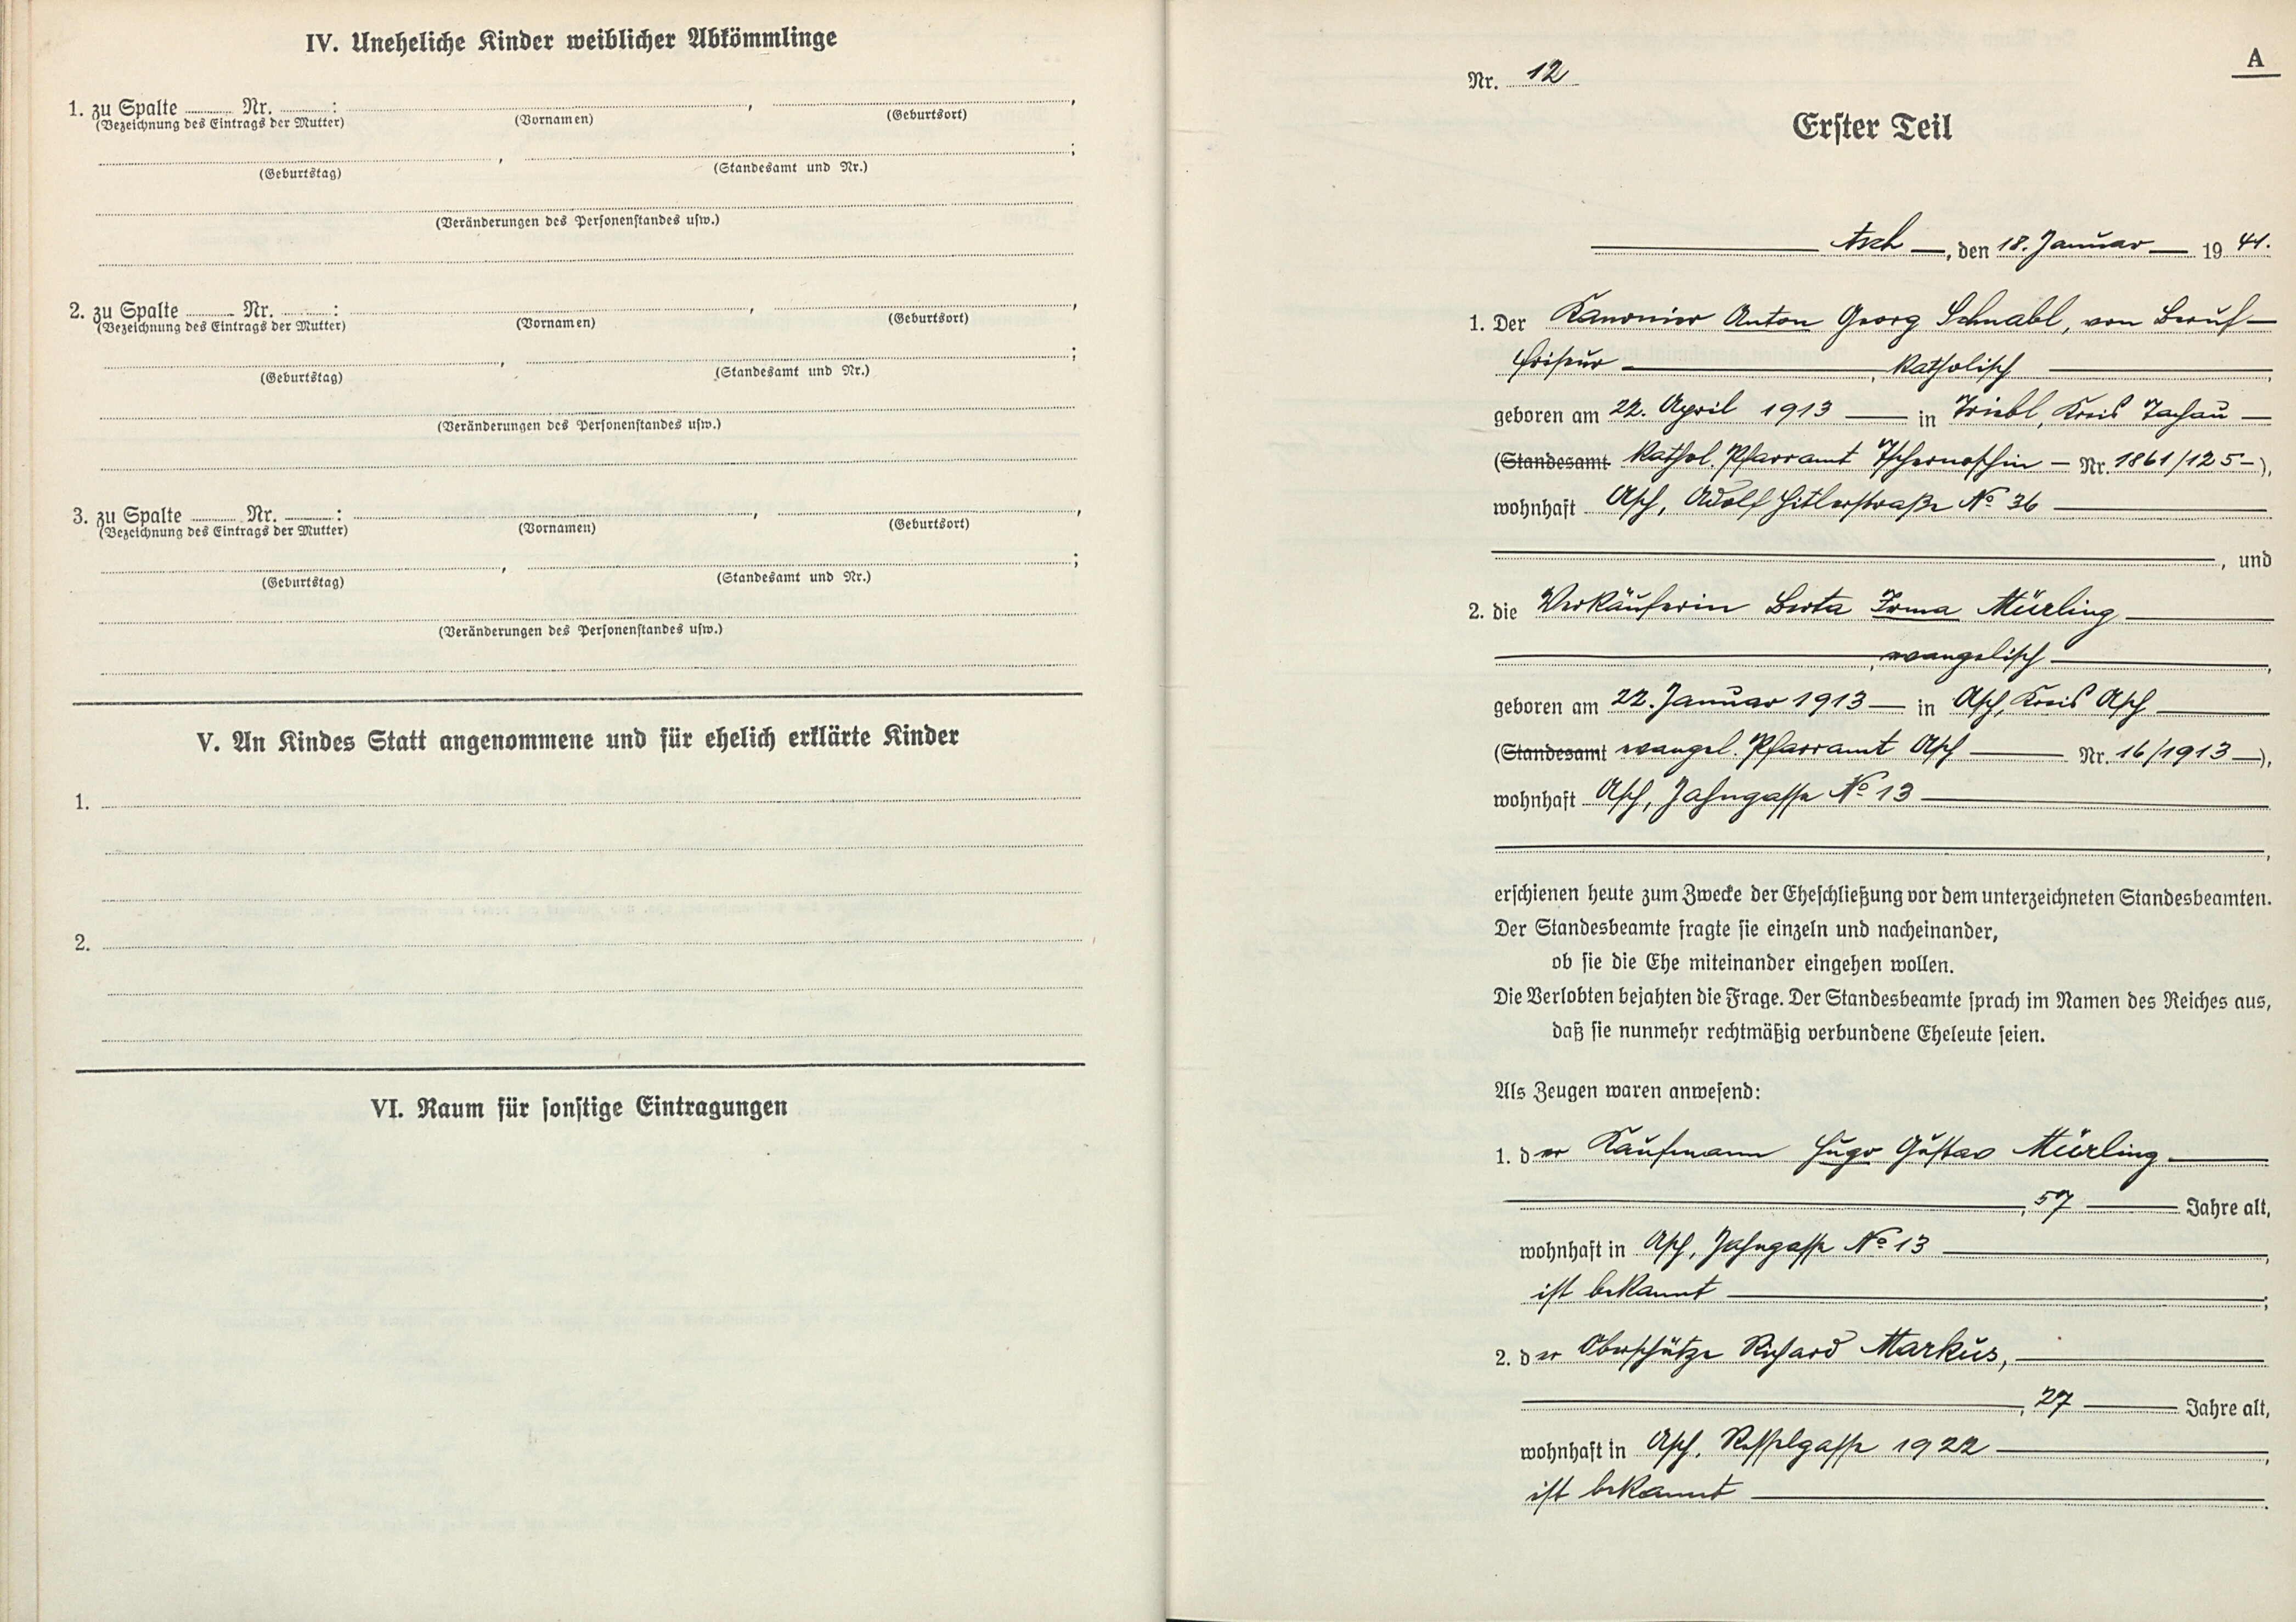 IV. Uneheliche Kinder weiblicher Abkömmlinge
1. zu Spalte ........ Nr. ........ : ........ , ........ ,
(Bezeichnung des Eintrags der Mutter) (Vornamen) (Geburtsort)
........ , ........ ;
(Geburtstag) (Standesamt und Nr.)
(Veränderungen des Personenstandes usw.)
2. zu Spalte ........ Nr. ........ : ........ , ........ ,
(Bezeichnung des Eintrags der Mutter) (Vornamen) (Geburtsort)
........ , ........ ;
(Geburtstag) (Standesamt und Nr.)
(Veränderungen des Personenstandes usw.)
3. zu Spalte ........ Nr. ........ : ........ , ........ ,
(Bezeichnung des Eintrags der Mutter) (Vornamen) (Geburtsort)
........ , ........ ;
(Geburtstag) (Standesamt und Nr.)
(Veränderungen des Personenstandes usw.)
V. An Kindes Statt angenommene und für ehelich erklärte Kinder
1.
2.
VI. Raum für sonstige Eintragungen
A
Nr. 12
Erster Teil
Asch, den 18. Januar 1941.
1. Der Kanonier Anton Georg Schnabl, von Beruf
Friseur, katholisch,
geboren am 22. April 1913 in Triebl, Kreis Tachau
(Standesamt kathol. Pfarramt Tschernoschin Nr. 1861/125),
wohnhaft Asch, Adolf Hitlerstraße No 36
, und
2. die Verkäuferin Berta Irma Mürling
, evangelisch,
geboren am 22. Januar 1913 in Asch, Kreis Asch
(Standesamt evangel. Pfarramt Asch Nr. 16/1913),
wohnhaft Asch, Jahngasse No 13
,
erschienen heute zum Zwecke der Eheschließung vor dem unterzeichneten Standesbeamten.
Der Standesbeamte fragte sie einzeln und nacheinander,
ob sie die Ehe miteinander eingehen wollen.
Die Verlobten bejahten die Frage. Der Standesbeamte sprach im Namen des Reiches aus,
daß sie nunmehr rechtmäßig verbundene Eheleute seien.
Als Zeugen waren anwesend:
1. der Kaufmann Hugo Gustav Mürling
, 57 Jahre alt,
wohnhaft in Asch, Jahngasse No 13,
ist bekannt;
2. der Oberschütze Richard Markus,
, 27 Jahre alt,
wohnhaft in Asch, 1922,
ist bekannt.